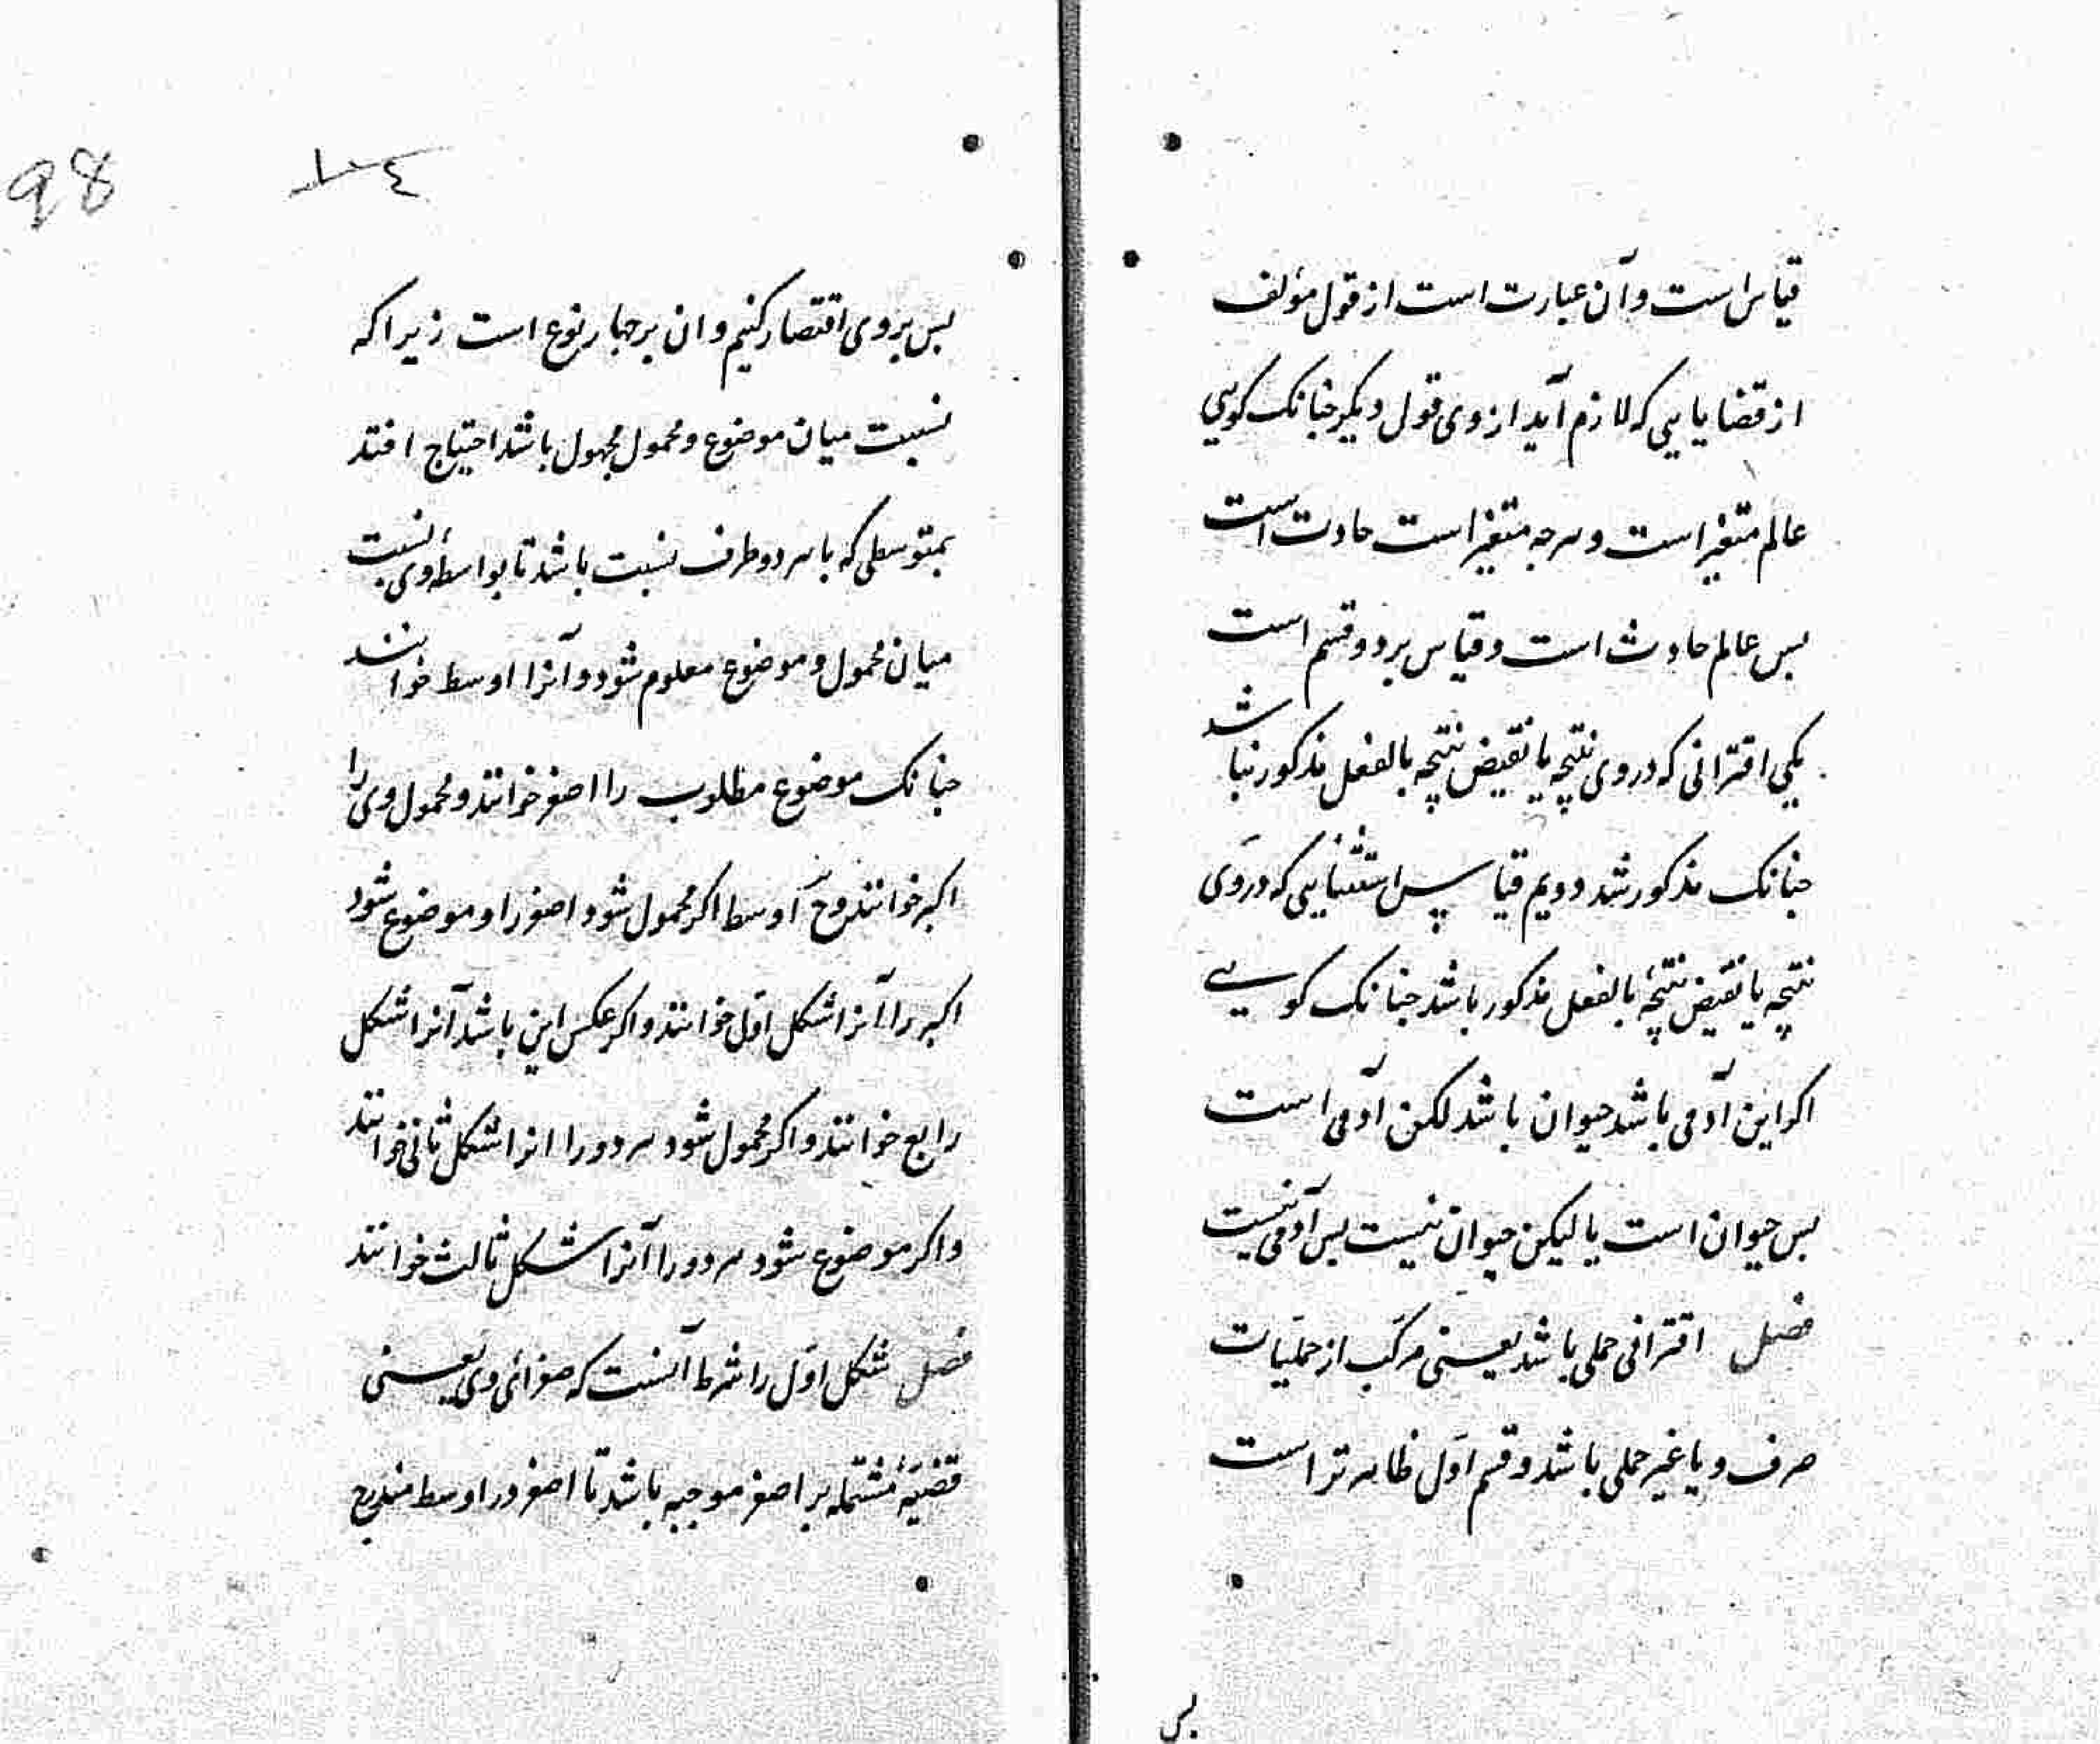 قیاس است و آن عبارت است از قول مؤلف
از قضایایی که لازم آید از وی قول دیکر جنانک کویی
عالم متغیر است و هرجه متغیر است حادث است
بس عالم حادث است و قیاس بر دو قسم است
یکی اقترانی که در وی نتیجه یا نقیض نتیجه بالفعل مذکور نباشد
جنانک مذکور شد دویم قیاس استثنایی که در وی
نتیجه یا نقیض نتیجه بالفعل مذکور باشد جنانک کویی
اکر این آدمی باشد حیوان باشد لکن آدمی است
بس حیوان است یا لیکن حیوان نیست بس آدمی نیست
فصل اقترانی حملی باشد یعنی مرکب از حملیات
صرف و یا غیر حملی باشد و قسم اول ظاهرتر است
بس
98
١٠٤
بس بر وی اقتصار کنیم و ان بر جهار نوع است زیرا که
نسبت میان موضوع و محمول مجهول باشد احتیاج افتد
بمتوسطی که با هر دو طرف نسبت باشد تا بواسطه وی نسبت
میان محمول و موضوع معلوم شود و آنرا اوسط خوانند
جنانک موضوع مطلوب را اصغر خوانند و محمول وی را
اکبر خوانند وح اوسط اکر محمول شود اصغر را و موضوع شود
اکبر را آنرا شکل اول خوانند و اکر عکس این باشد آنرا شکل
رابع خوانند و اکر محمول شود هر دو را انرا شکل ثانی خوانند
و اکر موضوع شود هر دو را آنرا شکل ثالث خوانند
فصل شکل اول را شرط آنست که صغرای وی یعنی
قضیهٔ مشتمله بر اصغر موجبه باشد تا اصغر در اوسط مندرج